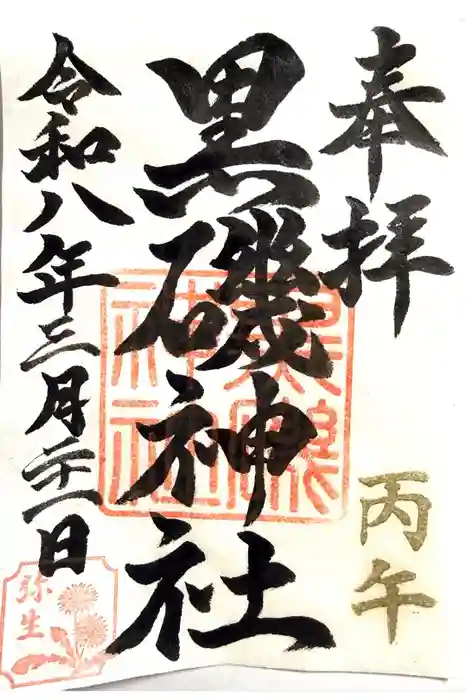 奉拝
丙午
黒磯神社
黒磯神社
令和八年三月二十一日
弥生